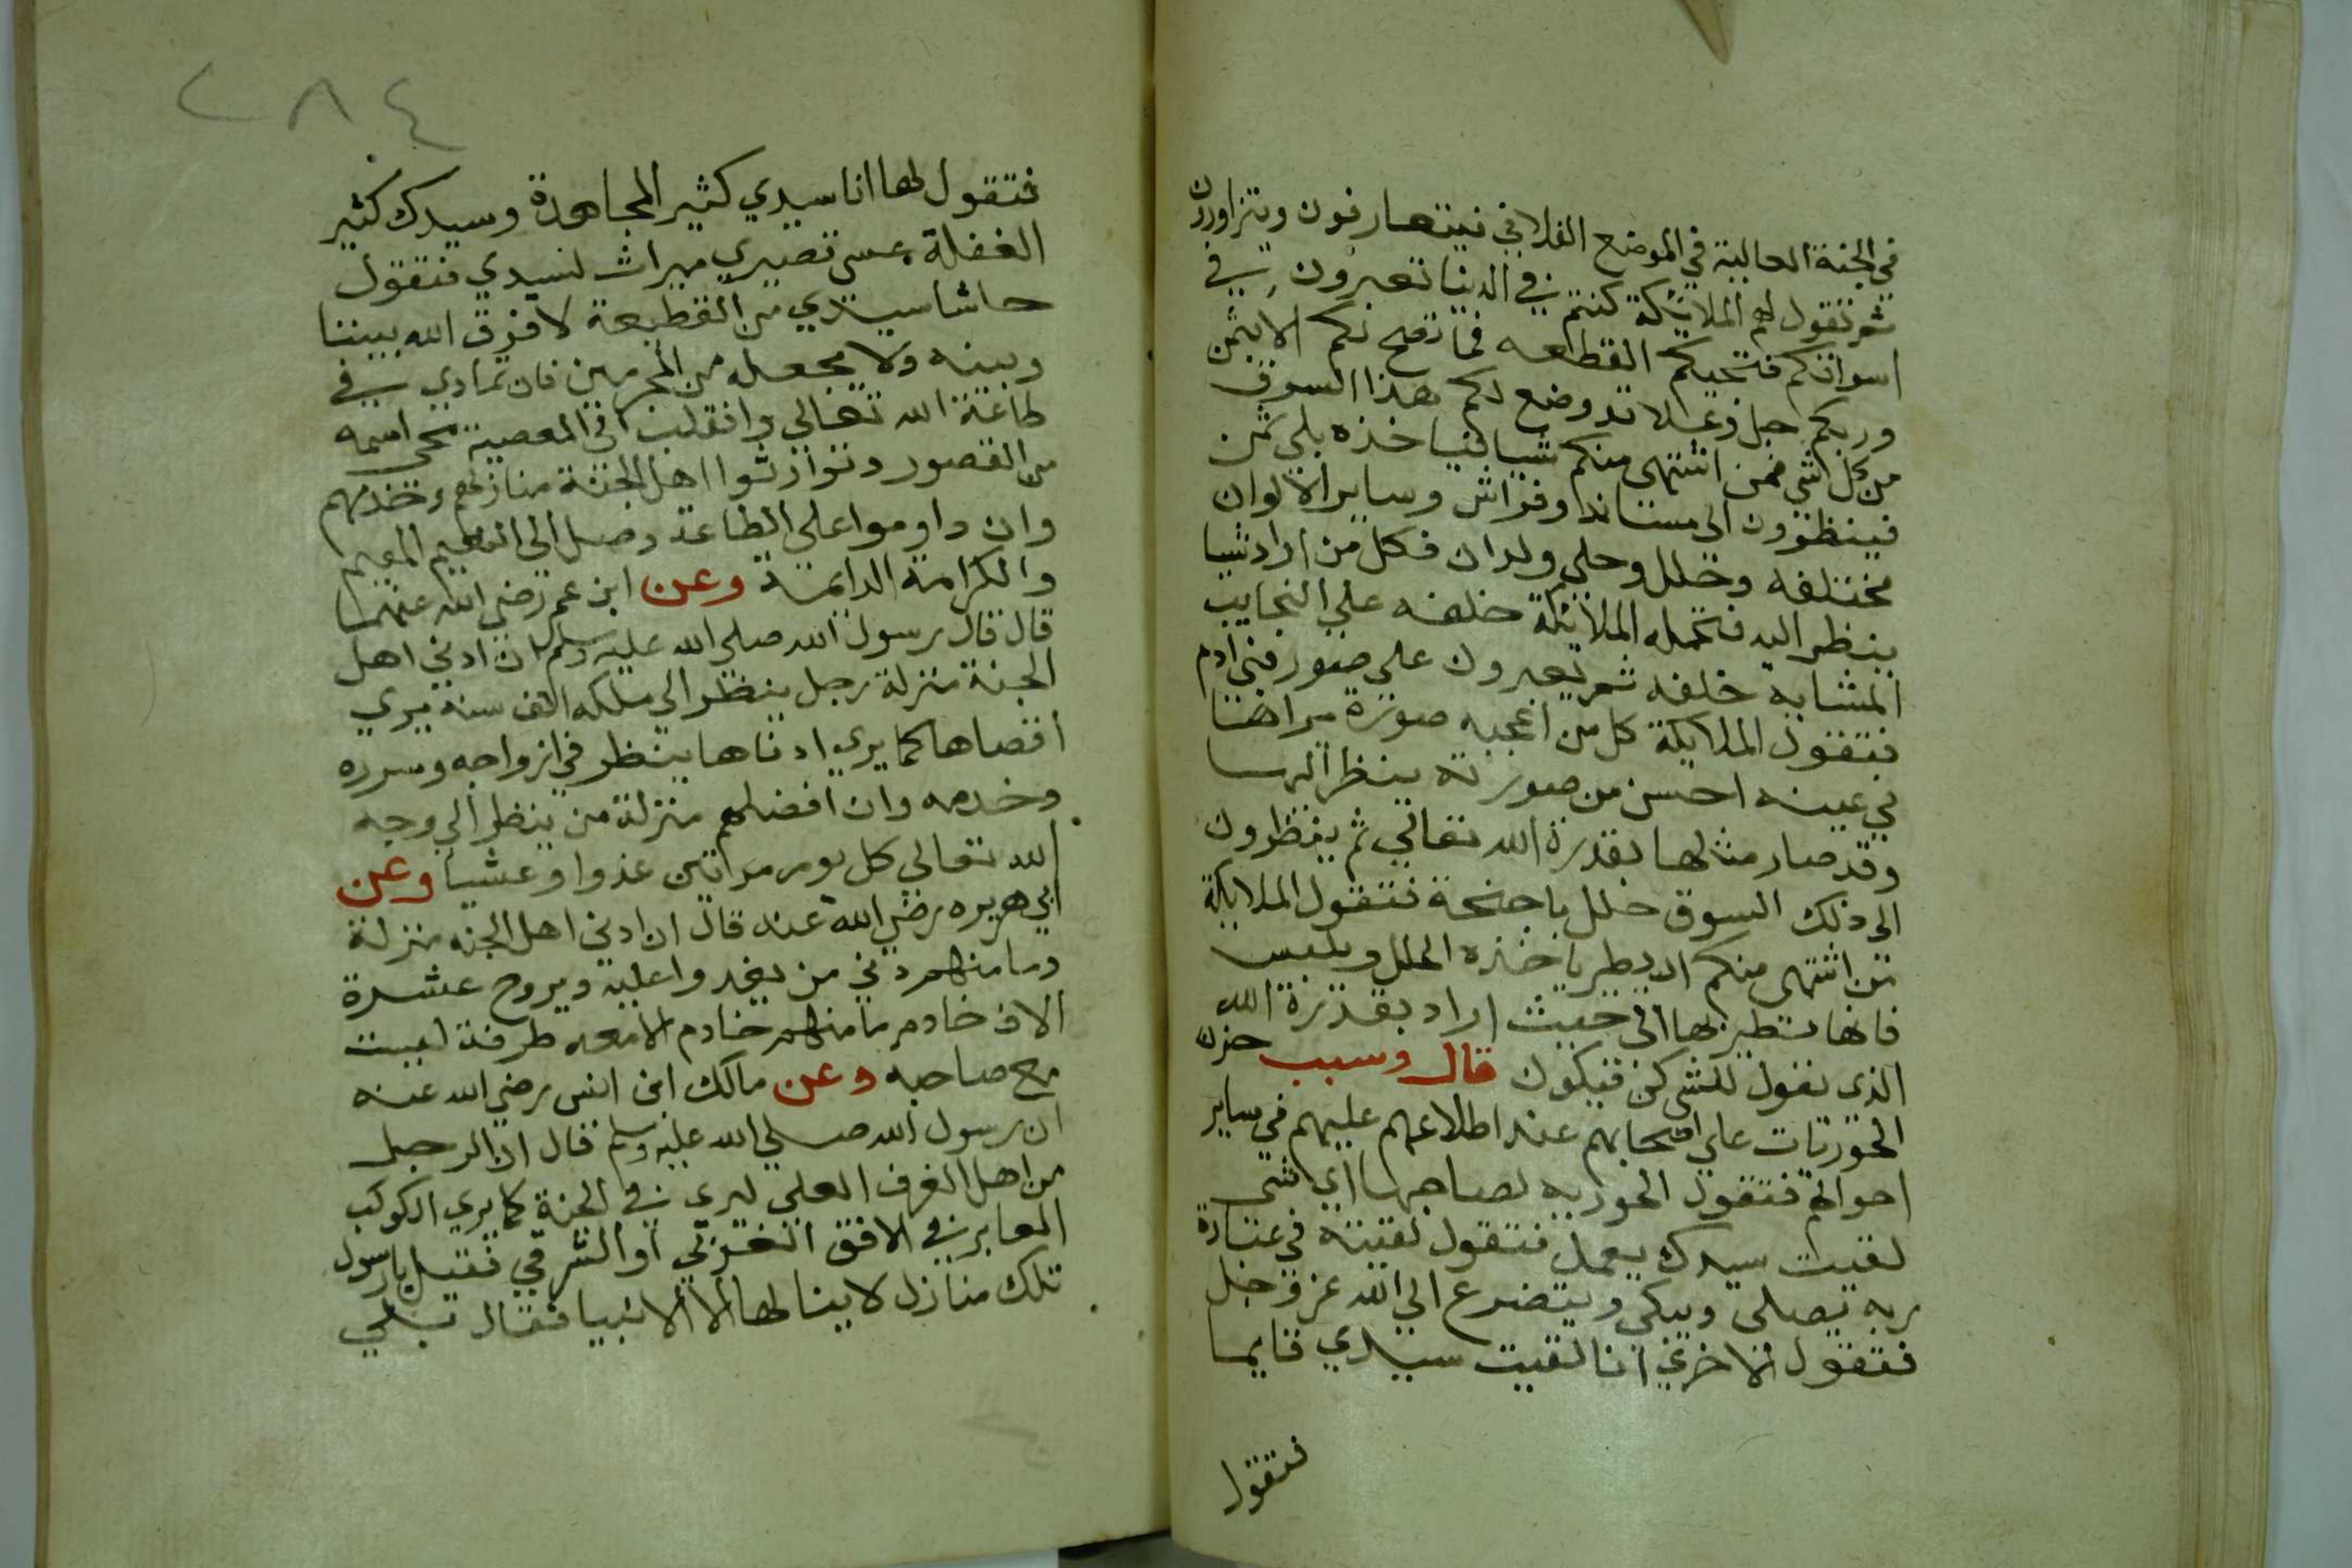 في الجنة العالية في الموضع الفلاني فيتعارفون ويتزاورون
ثم تقول لهم الملايكة كنتم في الدنيا تعبرون في
اسواقكم فتحيكم القطاعه فما تصح لكم الا بثمن
وربكم جل وعلا قد وضع لكم هذا السوق
من كل شي فمن اشتهى منكم شيا فياخذه بلى ثمن
فينظرون الى مساند وفراش وساير الالوان
مختلفه وحلل وحلي وولدان فكل من اراد شيا
ينظر اليه فتحمله الملايكة خلفه علي النجايب
المشابه خلفه ثم يعبرون على صور بني ادم
فتقول الملايكة كل من اعجبه صورة يراها
في عينه احسن من صورته ينظر اليها
وقد صار مثالها بقدرة الله تعالي ثم ينظرون
الى ذلك السوق حلل باجنحة فتقول الملايكة
من اشتهى منكم ان يطير ياخذه الحلل ويلبس
فانها تطير بها الى حيث اراد بقدرة الله
الذي يقول للشي كن فيكون قال وسبب حزن
الحوريات علي اصحابهم عند اطلاعهم عليهم في ساير
احوالهم فتقول الحوريه لصاحبها اي شي
لقيت سيدك يعمل فتقول لقيته في عبادة
ربه يصلى ويبكي ويتضرع الي الله عز وجل
فتقول الاخرى انا لقيت سيدي قايما
فتقول
٢٨٤
فتقول لها انا سيدي كثير المجاهدة وسيدك كثير
الغفلة عسى تصيري ميراث لسيدي فتقول
حاشا سيدي من القطيعة لا فرق الله بيننا
وبينه ولا يجعله من المجرمين فان تمادي في
طاعة الله تعالي وانقلب الى المعصية محى اسمه
من القصور وتوارثوا اهل الجنة منازلهم وخدمهم
وان داوموا على الطاعة وصل الي النعيم المقيم
والكرامة الدايمة وعن ابن عمر رضي الله عنهما
قال قال رسول الله صلى الله عليه وسلم ان ادني اهل
الجنة منزلة رجل ينظر الي ملكه الف سنة يري
اقصاها كما يري ادناها ينظر في ازواجه وسرره
وخدمه وان افضلهم منزلة من ينظر الي وجه
الله تعالي كل يوم مرتين غدوا وعشيا وعن
ابي هريره رضي الله عنه قال ان ادني اهل الجنه منزلة
وما منهم دني من يغدوا عليه ويروح عشرة
الاف خادم ما منهم خادم الا معه طرفة ليست
مع صاحبه وعن مالك ابن انس رضي الله عنه
ان رسول الله صلي الله عليه وسلم قال ان الرجل
من اهل الغرف العلي ليرى في الجنة كما يري الكوكب
الغابر في الافق الغربي او الشرقي فقيل يا رسول
تلك منازل لا ينالها الا الانبيا فقال بلي